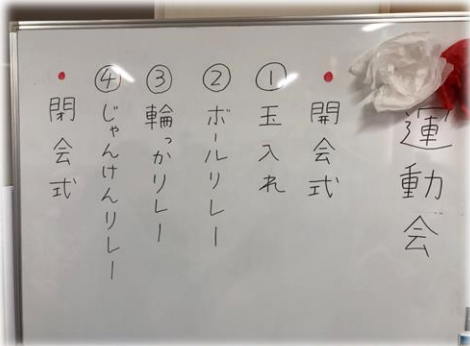 運動会
● 開会式
① 玉入れ
② ボールリレー
③ 輪っかリレー
④ じゃんけんリレー
● 閉会式